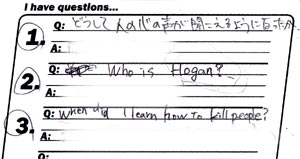 I have questions...
1. Q: どうして人の心の声が聞こえるように
A:
2. Q: Who is Hogan?
A:
3. Q: When did I learn how to kill people?
A:
Q: